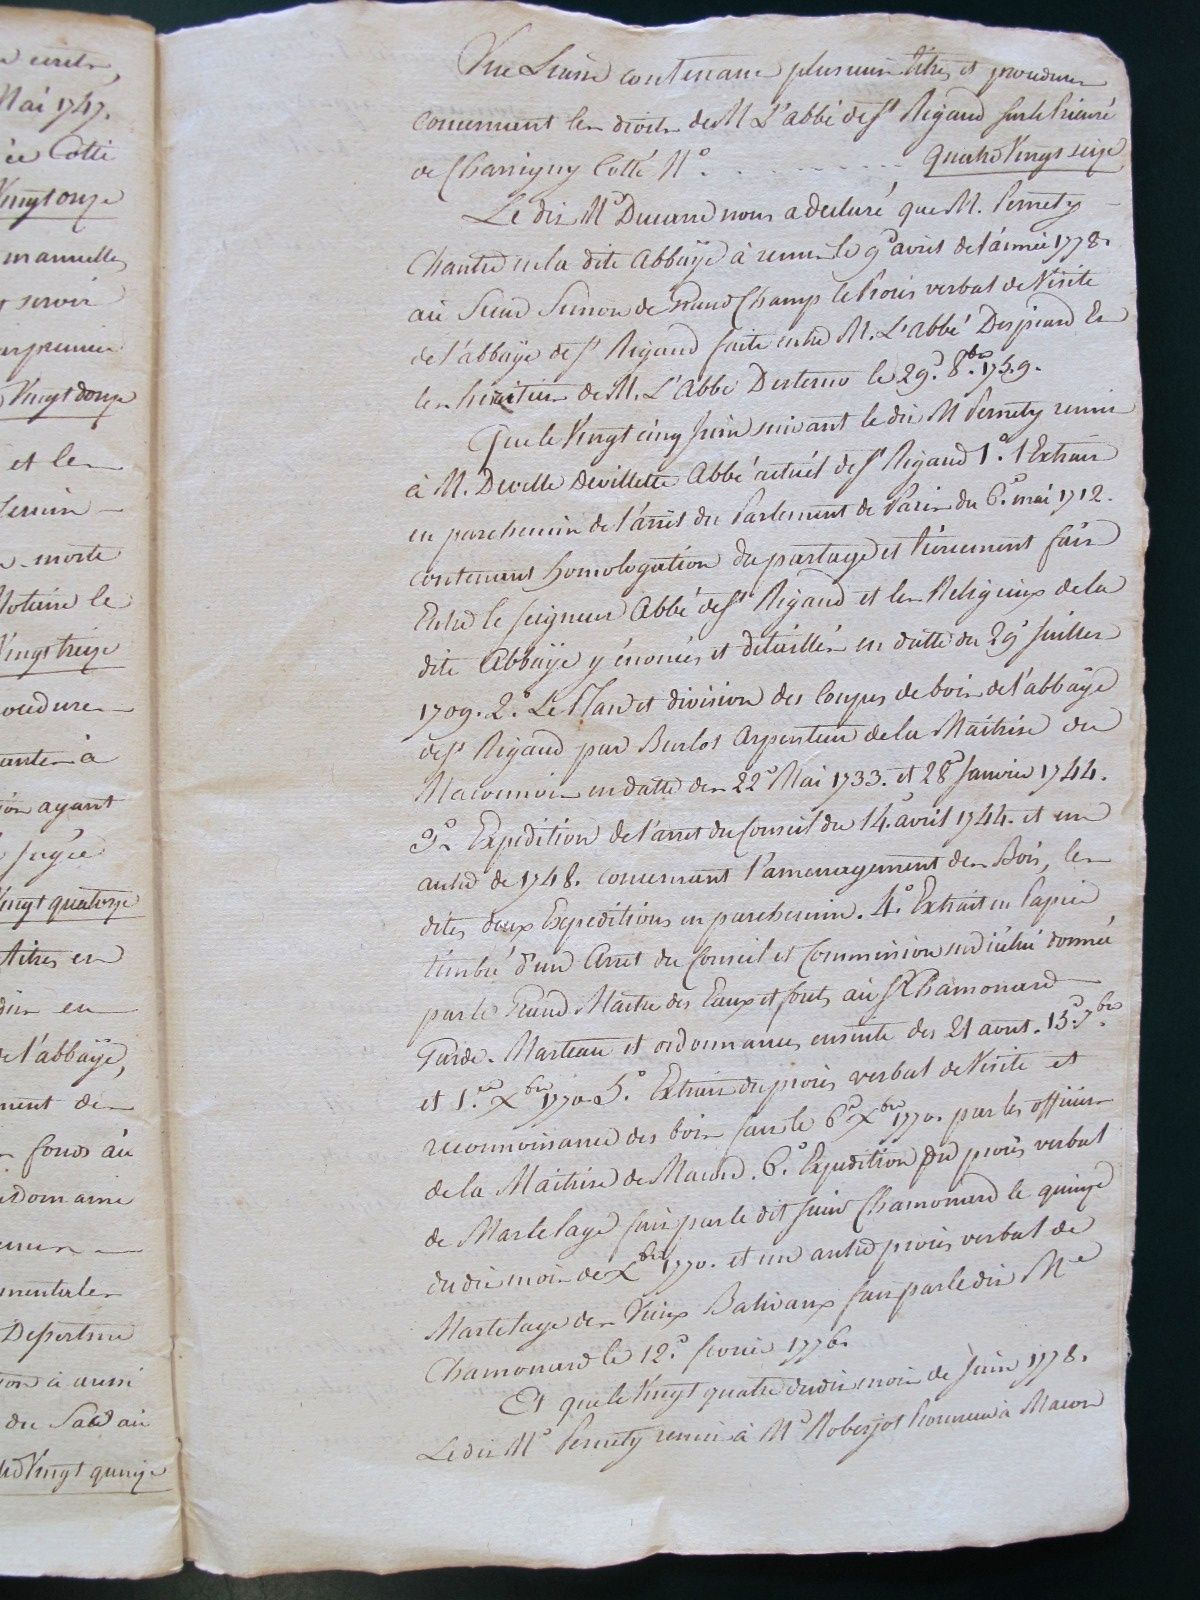 e cirets,
Mai 1747.
ée Cotté
Vingt onze
manuelles
servir
premier
Vingt douze
et les
Terrier
morte
Notaire le
Vingt treize
procedures
ayant
jugée
Vingt quatorze
titres en
en
de l'abbaÿe,
ment de
fonds au
Domaine
Déport
on a aussi
du
Vingt quinze
Une Liasse contenant plusieurs titres et procedures
concernant les droits de M L'abbé de St Rigaud sur le Prieuré
de Charrigny Cotté No. . . . . . . . Quatre Vingt seize
Le dit Me Ducarre nous a declaré que M. Pernety
Chantre de la dite Abbaÿe à remis le 9e avril de l'année 1778.
au Sieur Simon de Grand Champ le Procès verbal de Visite
de l'abbaÿe de St Rigaud faite entre M. L'abbé Despiard Et
les heritiers de M. L'Abbé Desterno le 29e 8bre 1759.
Que le Vingt cinq Juin suivant le dit M Pernety remit
à M. Decelle Devillette Abbé actuel de St Rigaud 1o. l'Extrait
en parchemin de l'arrêt du Parlement de Paris du 6e mai 1712.
contenant homologation du partage et Réglement fait
Entre le seigneur Abbé de St Rigaud et les Religieux de la
dite Abbaÿe y énoncés et détaillés en datte du 29e Juillet
1709. 2o. Le Plan et division des Coupes de bois de l'abbaÿe
de St Rigaud par Burlot Arpenteur de la Maitrise du
Maconnois en datte des 22e Mai 1733. et 28e Janvier 1744.
3o. Expedition de l'arret du Conseil du 14e avril 1744. et un
autre de 1748. concernant l'amenagement des Bois, les
dites deux Expeditions en parchemin. 4o. Extrait en Papier
timbré d'un Arret du Conseil et Commission donnée
par le Grand Maitre des Eaux et forets au Sr Chamonard
Garde-Marteau et ordonnances ensuite des 21 aout. 13e 7bre
et 1er Xbre 1770. 5o. Extrait du procès verbal de Visite et
reconnoissance des bois fait le 6e Xbre 1770. par les officiers
de la Maitrise de Macon. 6o. Expedition du procès verbal
de Martelage fait par le dit sieur Chamonard le quinze
du dit mois de Xbre 1770. et un autre procès verbal de
Martelage des Vieux Balivaux fait par le dit Me
Chamonard le 12e fevrier 1776.
Et que le Vingt quatre dudit mois de Juin 1778.
Le dit Me Pernety remit à Me Roberjot Procureur à Macon